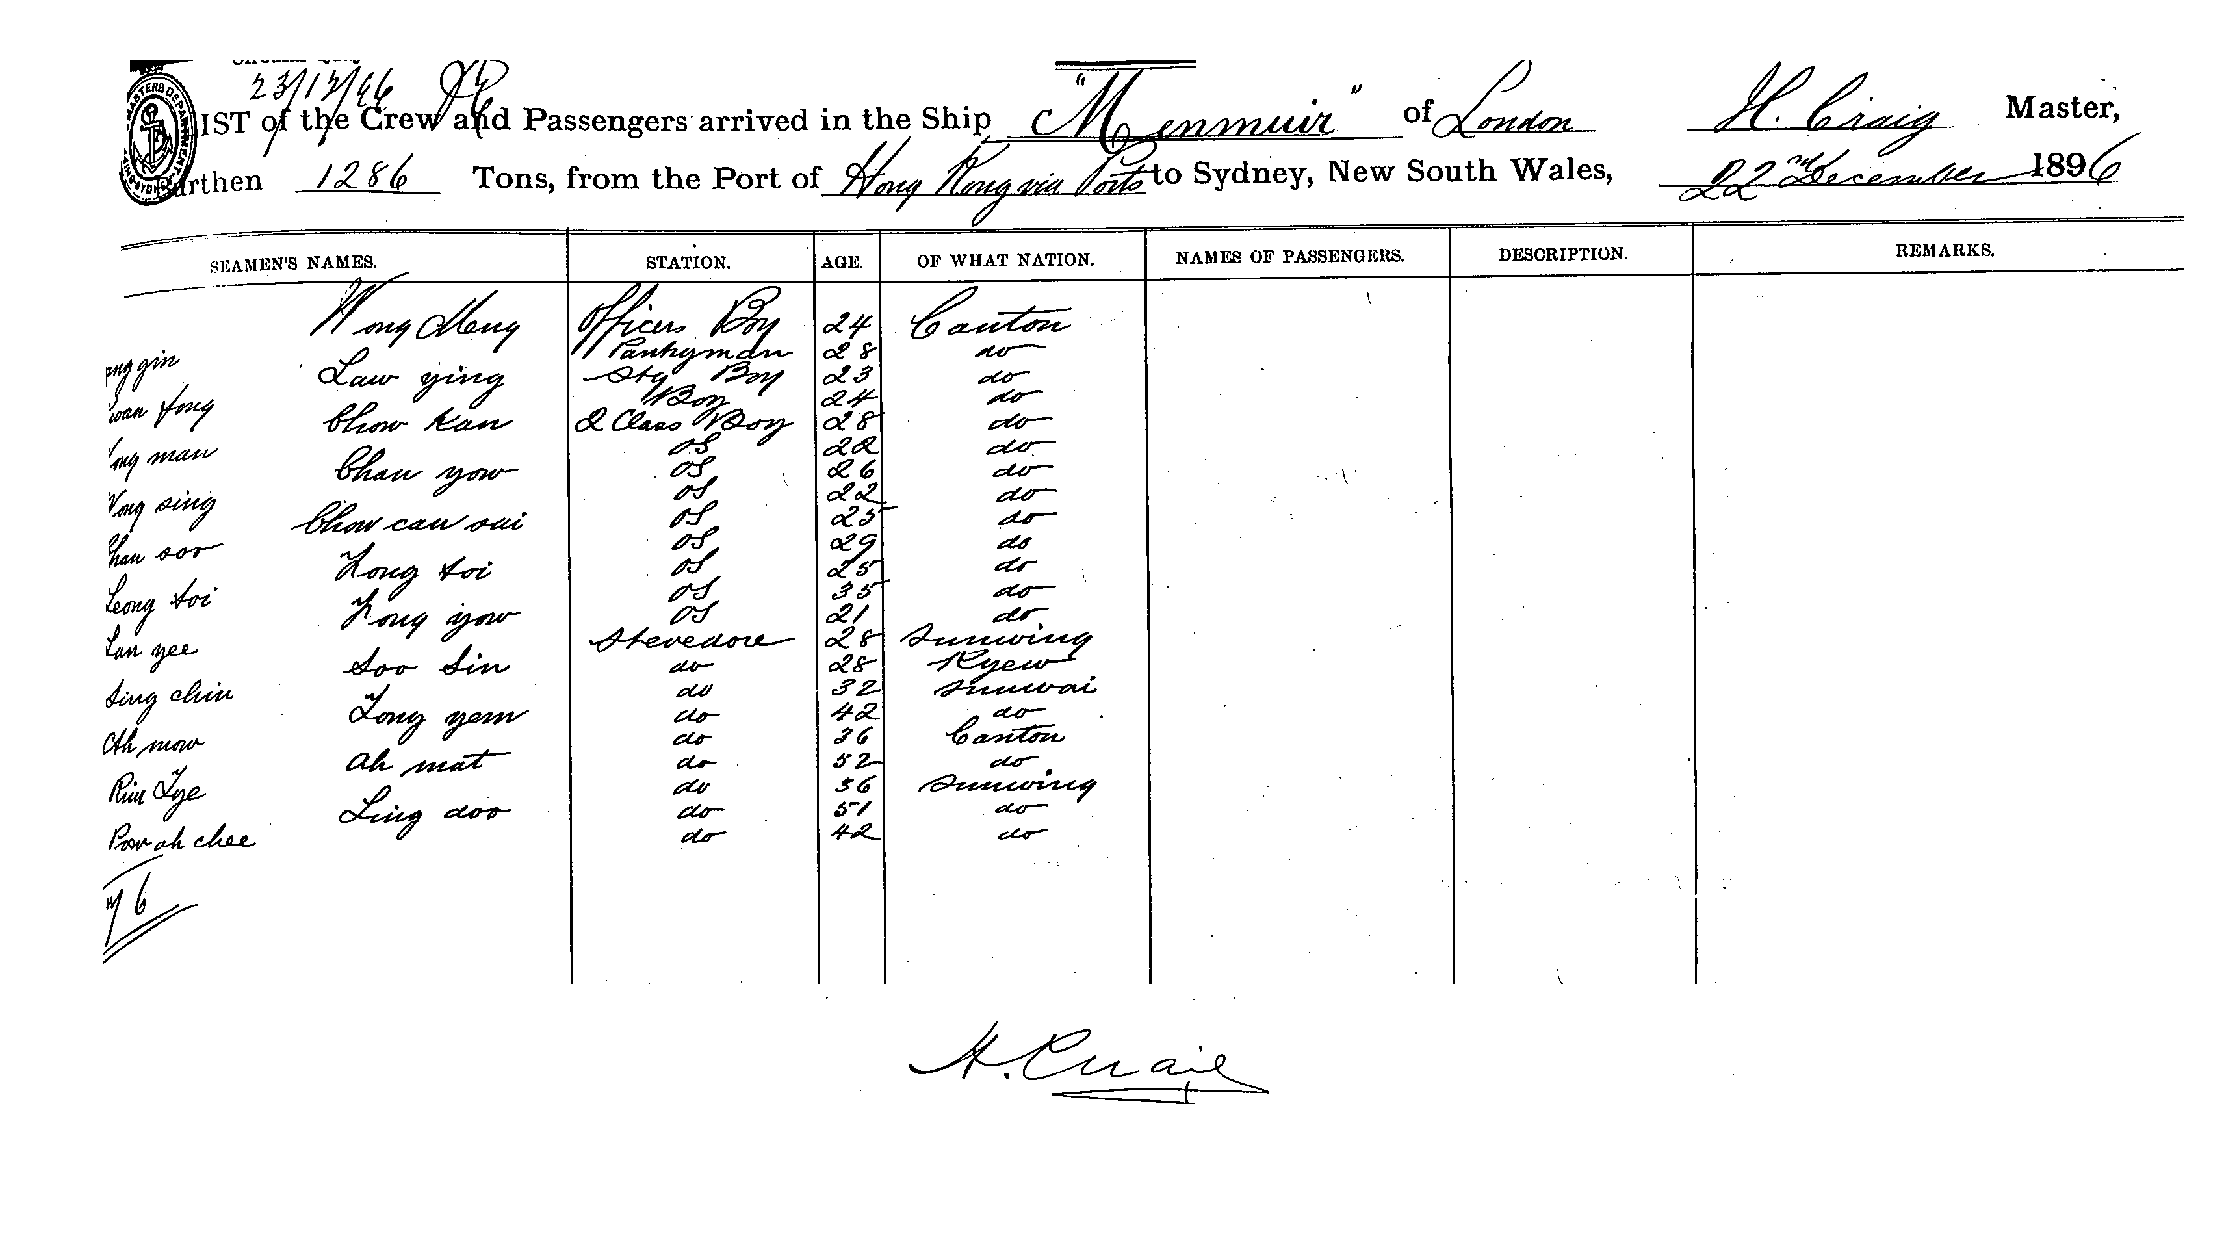 23/12/96
LIST of the Crew and Passengers arrived in the Ship "Menmuir" of London H. Craig Master,
Burthen 1286 Tons, from the Port of Hong Kong via Ports to Sydney, New South Wales, 22nd December 1896
SEAMEN'S NAMES. STATION. AGE. OF WHAT NATION. NAMES OF PASSENGERS. DESCRIPTION. REMARKS.
Wong Meng Officers Boy 24 Canton
gin Pantryman 28 do
Law ying Stg Boy 23 do
tong Boy 24 do
Chow Kan 2 Class Boy 28 do
man OS 22 do
Chan yow OS 26 do
Wong sing OS 22 do
Chow can sui OS 25 do
Chan soo OS 29 do
Kong toi OS 25 do
Leong toi OS 35 do
Kong yow OS 21 do
Lan yee Stevedore 28 Sunwing
Soo Sin do 28 Kyew
Sing chin do 32 Sunwai
Long yem do 42 do
Ah mow do 36 Canton
Ah mat do 52 do
Kim Lye do 56 Sunwing
Ling doo do 51 do
Pow ah chee do 42 do
76
H. Craig